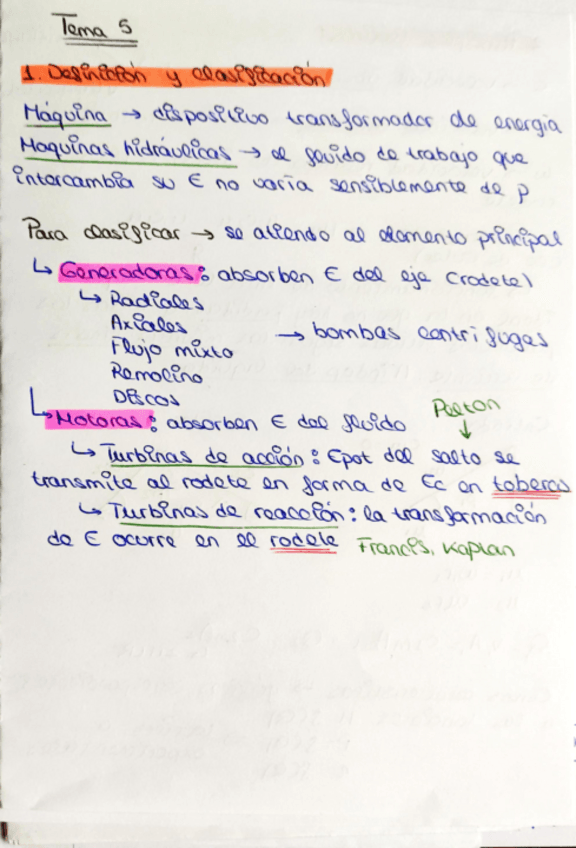 Tema 5
1. Definición y clasificación
Máquina → dispositivo transformador de energía
Maquinas hidráulicas → el fluido de trabajo que
intercambia su E no varía sensiblemente de ρ
Para clasificar → se atiende al elemento principal
↳ Generadoras: absorben E del eje (rodete)
↳ Radiales
Axiales
→ bombas centrífugas
Flujo mixto
Remolino
Discos
↳ Motoras: absorben E del fluido
Pelton
↓
↳ Turbinas de acción: Epot del salto se
transmite al rodete en forma de Ec en toberas
↳ Turbinas de reacción: la transformación
de E ocurre en el rodete Francis, Kaplan